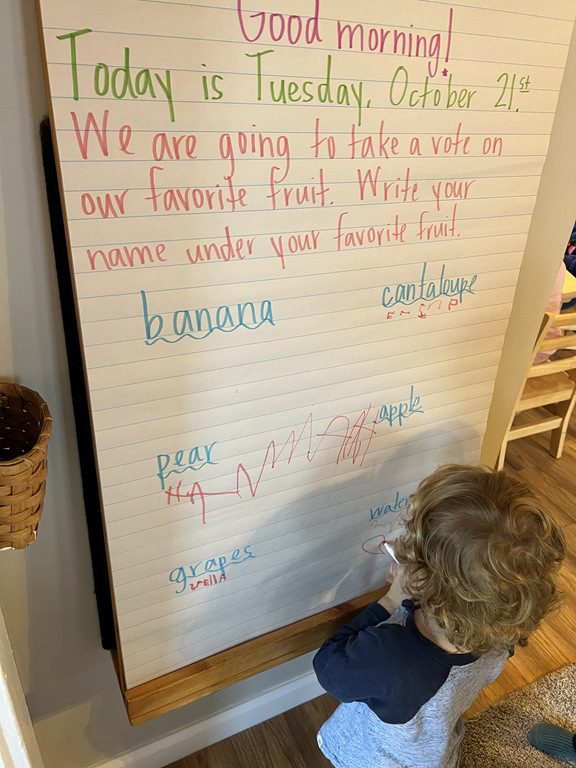 Good morning!
Today is Tuesday, October 21.st
We are going to take a vote on
our favorite fruit. Write your
name under your favorite fruit.
banana cantaloupe
pear apple
water
grapes